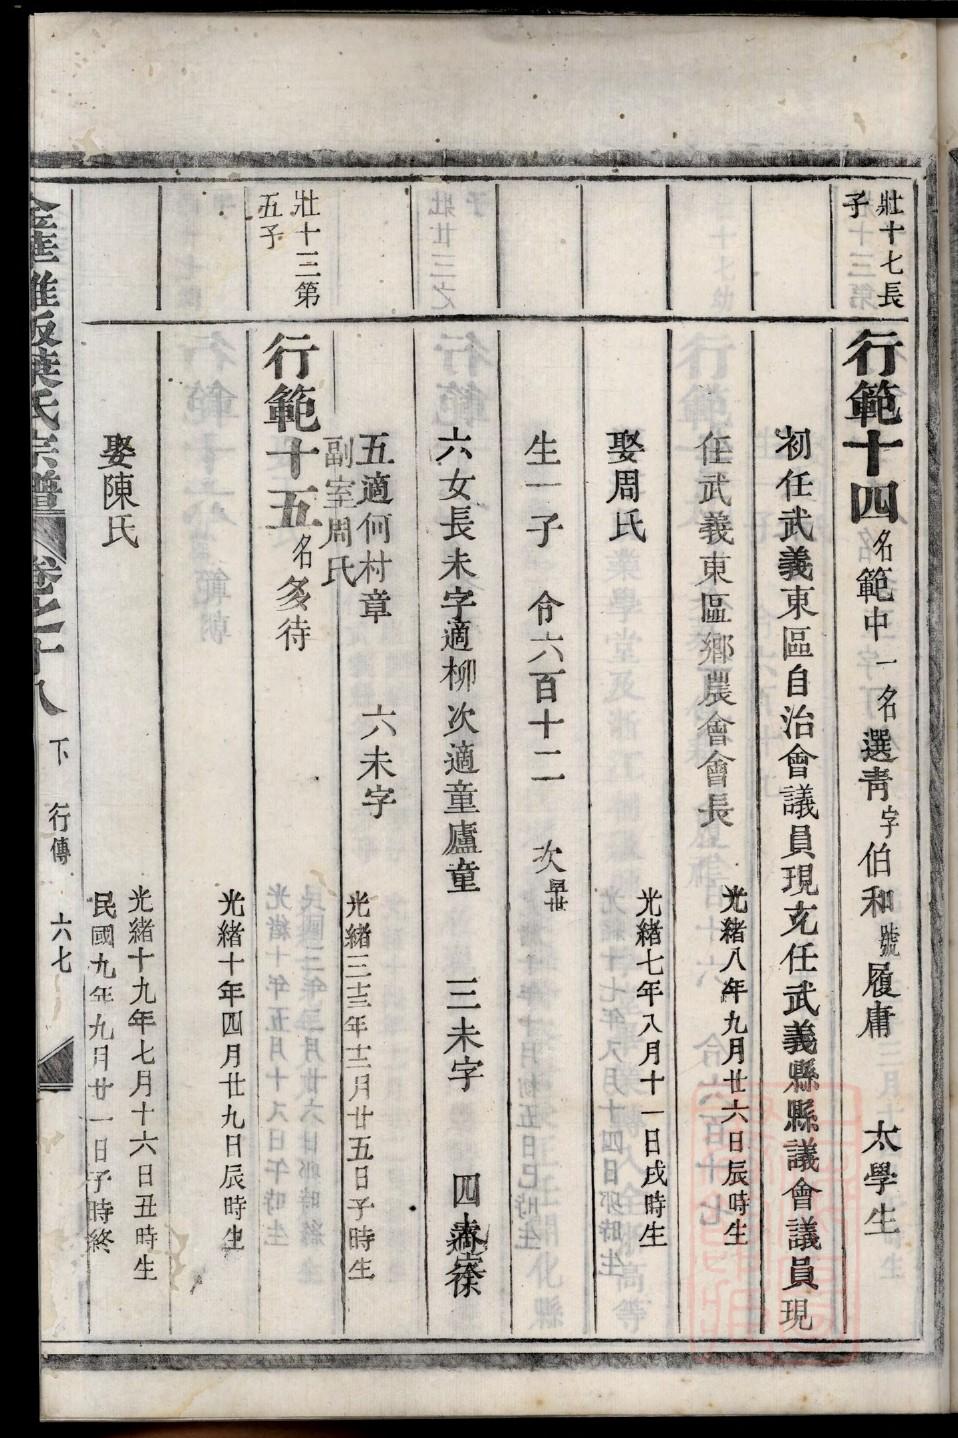 壯十七長
子
行範十四名範中一名選靑字伯和號履庸 太學生
初任武義東區自治會議員現充任武義縣縣議會議員現
任武義東區鄉農會會長
光緒八年九月廿六日辰時生
娶周氏
光緒七年八月十一日戌時生
生一子 令六百十二 次早世
六女長未字適柳 次適童廬童 三未字 四
五適何村章 六未字
副室周氏
光緒三十三年十二月廿五日子時生
壯十三第
五子
行範十五名多待
光緒十年四月廿九日辰時生
娶陳氏
光緒十九年七月十六日丑時生
民國九年九月廿一日子時終
金華 葉氏宗譜 卷之十八 下 行傳 六七